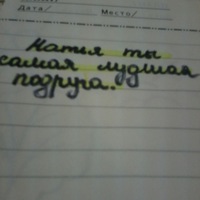 Дата/ Место/
Катя ты
самая лудшая
подруга.